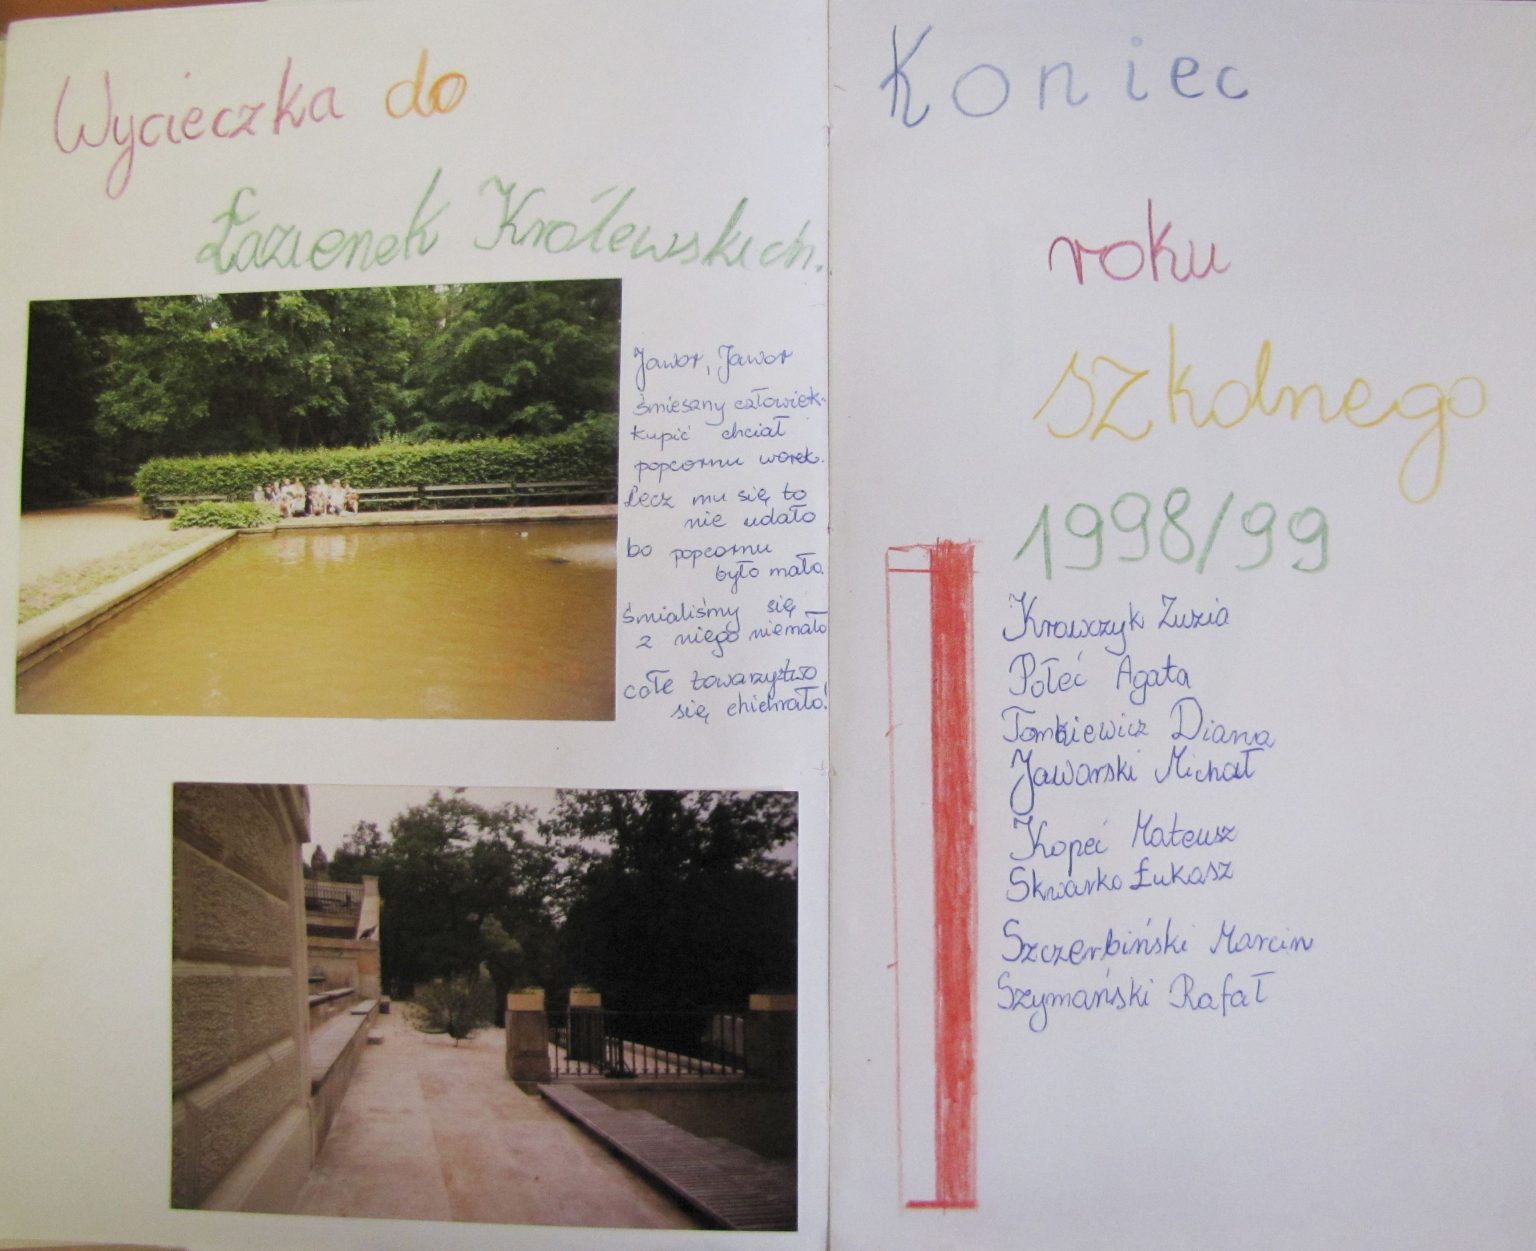 Wycieczka do
Łazienek Królewskich.
Jawor, Jawor
śmieszny człowiek-
kupić chciał
popcornu worek.
Lecz mu się to
nie udało
bo popcornu
było mało.
Śmialiśmy się
z niego niemało
całe towarzystwo
się chichrało!
Koniec
roku
szkolnego
1998/99
Krawczyk Zuzia
Połeć Agata
Tomkiewicz Diana
Jaworski Michał
Kopeć Mateusz
Skwarko Łukasz
Szczerbiński Marcin
Szymański Rafał